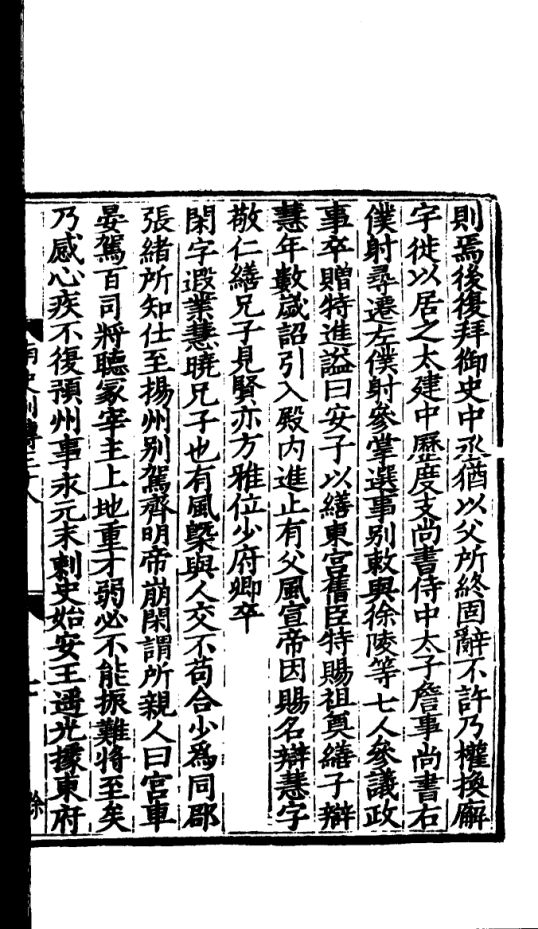 則焉後復拜御史中丞猶以父所終固辭不許乃權換廨
字徙以居之太建中歷度支尚書侍中太子詹事尚書右
僕射尋遷左僕射參掌選事别敕與徐陵等七人參議政
事卒贈特進謚曰安子以繕東宫舊臣特賜祖奠繕子辯
慧年數歲詔引入殿内進止有父風宣帝因賜名辯慧字
敬仁繕兄子見賢亦方雅位少府卿卒
閑字遐業慧曉兄子也有風槩與人交不苟合少為同郡
張緒所知仕至揚州别駕齊明帝崩閑謂所親人曰宫車
晏駕百司將聽冢宰主上地重才弱必不能振難將至矣
乃感心疾不復預州事永元末刺史始安王遥光據東府
南史列傳三十八